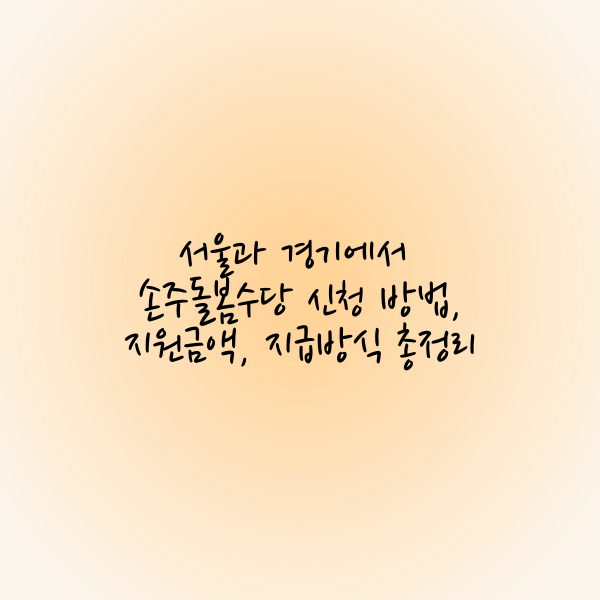 서울과 경기에서
손주돌봄수당 신청 방법,
지원금액, 지급방식 총정리